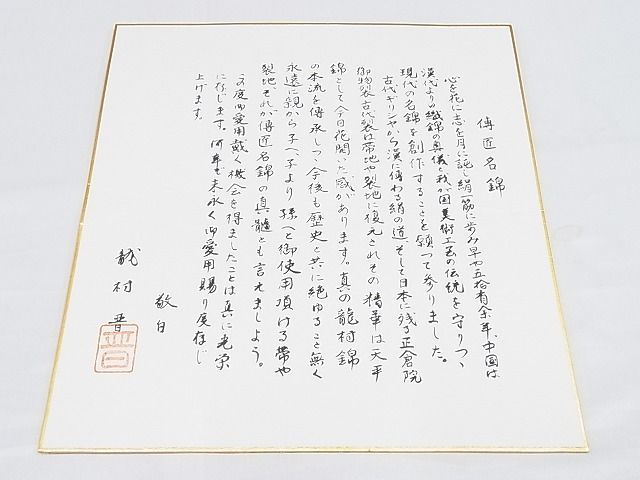 傳匠名錦
心を花に志を月に託し絹一筋に歩み早や五拾有余年、中国は
漢代よりの織錦の奥儀と我が国美術工芸の伝統を守りつゝ
現代の名錦を創作することを願って参りました。
古代ギリシヤから漢に傳わる絹の道、そして日本に残る正倉院
御物裂古代裂は帯地や裂地に復元されその精華は天平
錦として今日花開いた感があります。真の龍村錦
の本流を傳承しつゝ今後も歴史と共に絶ゆること無く
永遠に親から子へ子より孫へと御使用頂ける帯や
裂地、それが傳匠名錦の真髄とも言えましよう。
この度御愛用戴く機会を得ましたことは真に光栄
に存じます。何卒も末永く御愛用賜り度存じ
上げます。
敬白
龍村晋
晋